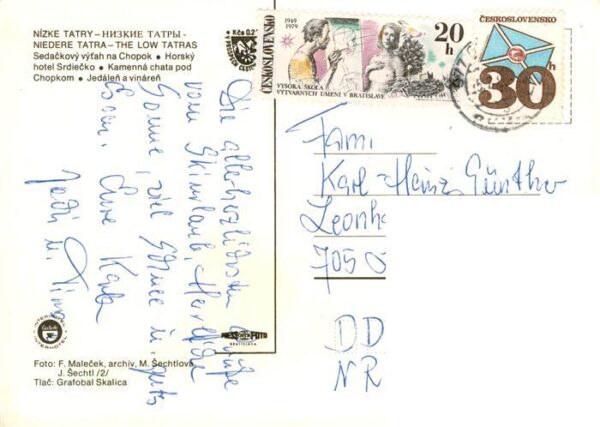 NÍZKE TATRY – НИЗКИЕ ТАТРЫ -
NIEDERE TATRA – THE LOW TATRAS
Sedačkový výťah na Chopok • Horský
hotel Srdiečko • Kamenná chata pod
Chopkom • Jedáleň a vináreň
Kčs 0.2
1949
1979
ČESKOSLOVENSKO
20h
VYSOKÁ ŠKOLA
VÝTVARNÝCH UMENÍ V BRATISLAVE
ČESKOSLOVENSKO
30h
Die allerherzlichsten Grüße
vom Skiurlaub,
Sonne, viel Schnee u. gutes
Essen. Eure
Fam.
Karl-Heinz Günther
Leonh
705 0
DD
NR
INTERHOTEL
PRESSFOTO
BRATISLAVA
Foto: F. Maleček, archiv, M. Šechtlová,
J. Šechtl /2/
Tlač: Grafobal Skalica